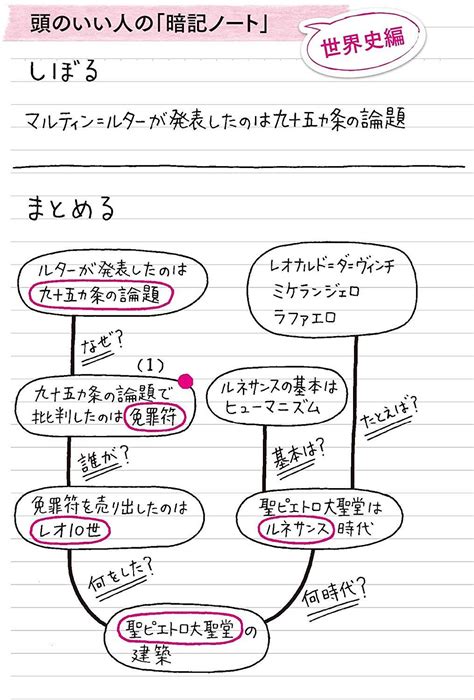 頭のいい人の「暗記ノート」
世界史編
しぼる
マルティン=ルターが発表したのは九十五ヵ条の論題
まとめる
ルターが発表したのは
九十五ヵ条の論題
なぜ?
(1)
九十五ヵ条の論題で
批判したのは免罪符
誰が?
免罪符を売り出したのは
レオ10世
何をした?
レオナルド=ダ=ヴィンチ
ミケランジェロ
ラファエロ
たとえば?
ルネサンスの基本は
ヒューマニズム
基本は?
聖ピエトロ大聖堂は
ルネサンス時代
何時代?
聖ピエトロ大聖堂の
建築